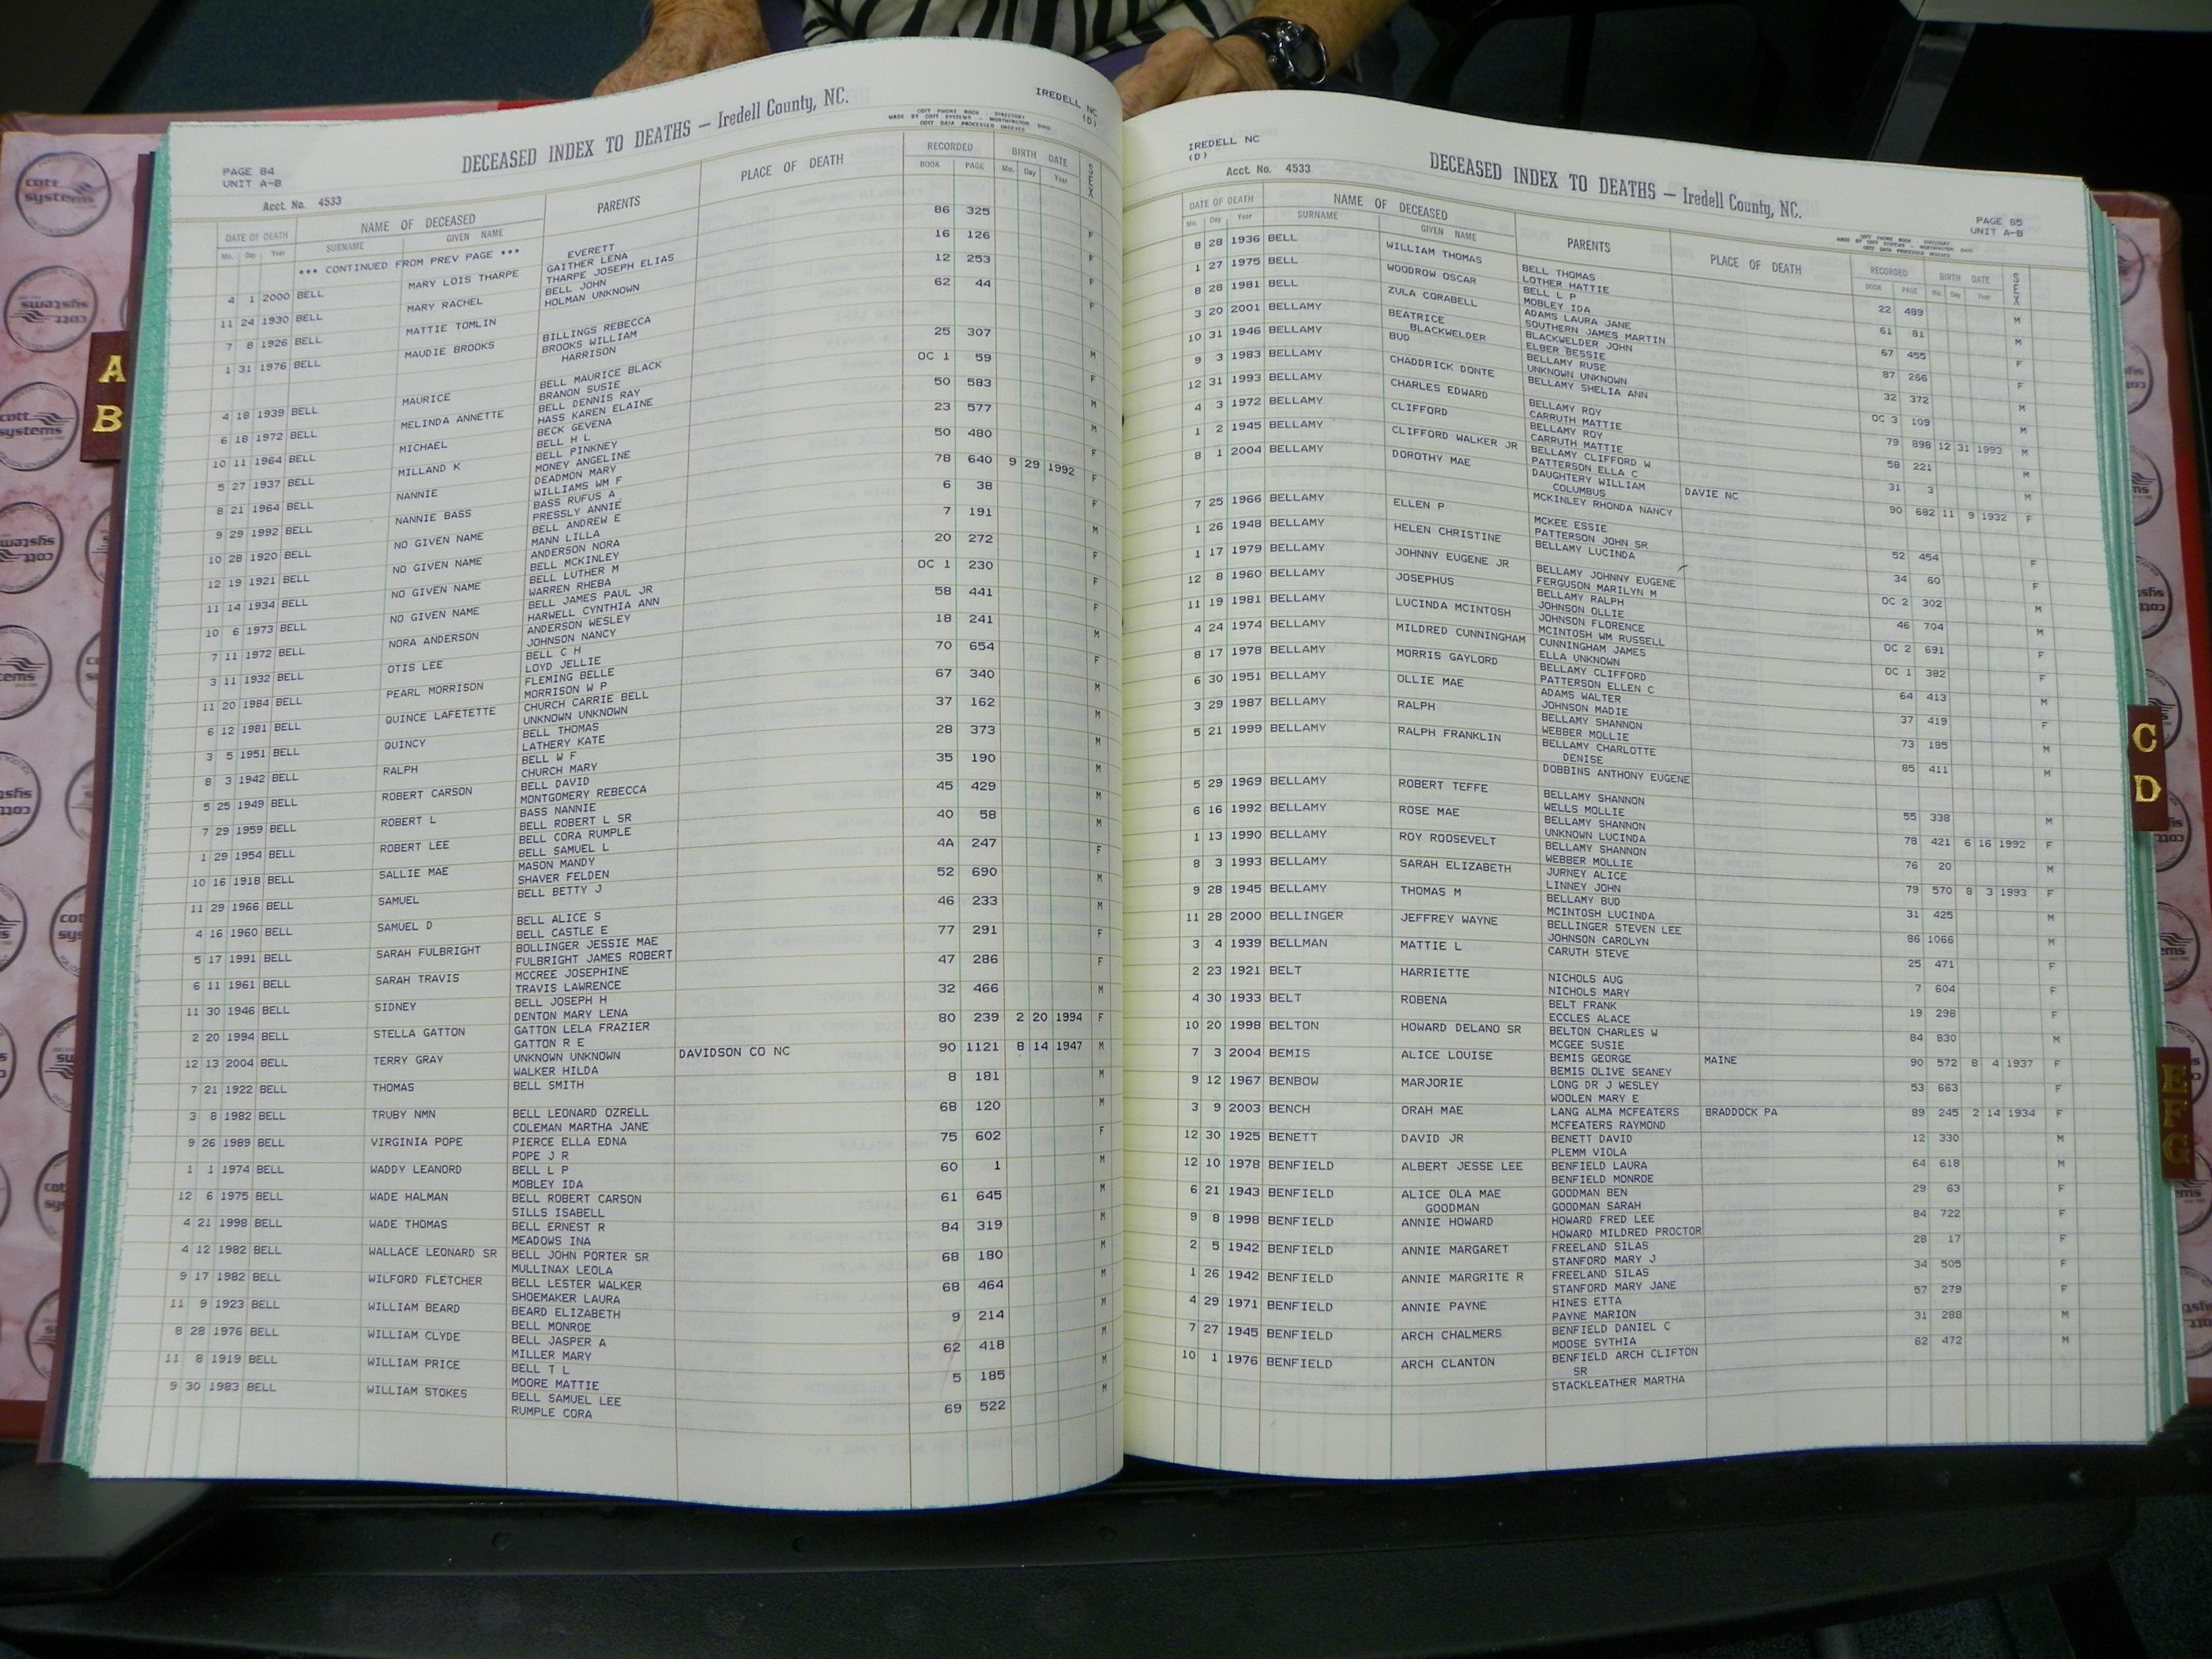 IREDELL NC
(D)
PAGE 84
UNIT A-B
DECEASED INDEX TO DEATHS — Iredell County, NC.
COTT PHONE BOOK - DIRECTORY
MADE BY COTT SYSTEMS - WORTHINGTON OHIO
COTT DATA PROCESSED INDEXES
Acct. No. 4533
DATE OF DEATH NAME OF DECEASED PARENTS PLACE OF DEATH RECORDED BIRTH DATE SEX
Mo. Day Year SURNAME GIVEN NAME BOOK PAGE Mo. Day Year
*** CONTINUED FROM PREV PAGE *** EVERETT
4 1 2000 BELL MARY LOIS THARPE GAITHER LENA 86 325 F
THARPE JOSEPH ELIAS
11 24 1930 BELL MARY RACHEL BELL JOHN 16 126 F
HOLMAN UNKNOWN
7 8 1926 BELL MATTIE TOMLIN 12 253 F
1 31 1976 BELL MAUDIE BROOKS BILLINGS REBECCA 62 44 F
BROOKS WILLIAM
HARRISON
4 18 1939 BELL MAURICE BELL MAURICE BLACK 25 307 M
BRANON SUSIE
6 18 1972 BELL MELINDA ANNETTE BELL DENNIS RAY OC 1 59 F
HASS KAREN ELAINE
10 11 1964 BELL MICHAEL BECK GEVENA 50 583 M
BELL H L
5 27 1937 BELL MILLAND K BELL PINKNEY 23 577 M
MONEY ANGELINE
8 21 1964 BELL NANNIE DEADMON MARY 50 480 F
WILLIAMS WM F
9 29 1992 BELL NANNIE BASS BASS RUFUS A 78 640 9 29 1992 F
PRESSLY ANNIE
10 28 1920 BELL NO GIVEN NAME BELL ANDREW E 6 38 F
MANN LILLA
12 19 1921 BELL NO GIVEN NAME ANDERSON NORA 7 191 M
BELL MCKINLEY
11 14 1934 BELL NO GIVEN NAME BELL LUTHER M 20 272 F
WARREN RHEBA
10 6 1973 BELL NO GIVEN NAME BELL JAMES PAUL JR OC 1 230 F
HARWELL CYNTHIA ANN
7 11 1972 BELL NORA ANDERSON ANDERSON WESLEY 58 441 F
JOHNSON NANCY
3 11 1932 BELL OTIS LEE BELL C H 18 241 M
LOYD JELLIE
11 20 1984 BELL PEARL MORRISON FLEMING BELLE 70 654 F
MORRISON W P
6 12 1981 BELL QUINCE LAFETETTE CHURCH CARRIE BELL 67 340 M
UNKNOWN UNKNOWN
3 5 1951 BELL QUINCY BELL THOMAS 37 162 M
LATHERY KATE
8 3 1942 BELL RALPH BELL W F 28 373 M
CHURCH MARY
5 25 1949 BELL ROBERT CARSON BELL DAVID 35 190 M
MONTGOMERY REBECCA
7 29 1959 BELL ROBERT L BASS NANNIE 45 429 M
BELL ROBERT L SR
1 29 1954 BELL ROBERT LEE BELL CORA RUMPLE 40 58 M
BELL SAMUEL L
10 16 1918 BELL SALLIE MAE MASON MANDY 4A 247 F
SHAVER FELDEN
11 29 1966 BELL SAMUEL BELL BETTY J 52 690 M
4 16 1960 BELL SAMUEL D BELL ALICE S 46 233 M
BELL CASTLE E
5 17 1991 BELL SARAH FULBRIGHT BOLLINGER JESSIE MAE 77 291 F
FULBRIGHT JAMES ROBERT
6 11 1961 BELL SARAH TRAVIS MCCREE JOSEPHINE 47 286 F
TRAVIS LAWRENCE
11 30 1946 BELL SIDNEY BELL JOSEPH H 32 466 M
DENTON MARY LENA
2 20 1994 BELL STELLA GATTON GATTON LELA FRAZIER 80 239 2 20 1994 F
GATTON R E
12 13 2004 BELL TERRY GRAY UNKNOWN UNKNOWN DAVIDSON CO NC 90 1121 8 14 1947 M
WALKER HILDA
7 21 1922 BELL THOMAS BELL SMITH 8 181 M
3 8 1982 BELL TRUBY NMN BELL LEONARD OZRELL 68 120 M
COLEMAN MARTHA JANE
9 26 1989 BELL VIRGINIA POPE PIERCE ELLA EDNA 75 602 F
POPE J R
1 1 1974 BELL WADDY LEANORD BELL L P 60 1 M
MOBLEY IDA
12 6 1975 BELL WADE HALMAN BELL ROBERT CARSON 61 645 M
SILLS ISABELL
4 21 1998 BELL WADE THOMAS BELL ERNEST R 84 319 M
MEADOWS INA
4 12 1982 BELL WALLACE LEONARD SR BELL JOHN PORTER SR 68 180 M
MULLINAX LEOLA
9 17 1982 BELL WILFORD FLETCHER BELL LESTER WALKER 68 464 M
SHOEMAKER LAURA
11 9 1923 BELL WILLIAM BEARD BEARD ELIZABETH 9 214 M
BELL MONROE
8 28 1976 BELL WILLIAM CLYDE BELL JASPER A 62 418 M
MILLER MARY
11 8 1919 BELL WILLIAM PRICE BELL T L 5 185 M
MOORE MATTIE
9 30 1983 BELL WILLIAM STOKES BELL SAMUEL LEE 69 522 M
RUMPLE CORA
IREDELL NC
(D)
Acct. No. 4533
DECEASED INDEX TO DEATHS — Iredell County, NC.
PAGE 85
UNIT A-B
COTT PHONE BOOK - DIRECTORY
MADE BY COTT SYSTEMS - WORTHINGTON OHIO
COTT DATA PROCESSED INDEXES
DATE OF DEATH NAME OF DECEASED PARENTS PLACE OF DEATH RECORDED BIRTH DATE SEX
Mo. Day Year SURNAME GIVEN NAME BOOK PAGE Mo. Day Year
8 28 1936 BELL WILLIAM THOMAS BELL THOMAS 22 489 M
LOTHER HATTIE
1 27 1975 BELL WOODROW OSCAR BELL L P 61 81 M
MOBLEY IDA
8 28 1981 BELL ZULA CORABELL ADAMS LAURA JANE 67 455 F
SOUTHERN JAMES MARTIN
3 20 2001 BELLAMY BEATRICE BLACKWELDER JOHN 87 266 F
BLACKWELDER ELBER BESSIE
10 31 1946 BELLAMY BUD BELLAMY RUSE 32 372 M
UNKNOWN UNKNOWN
9 3 1983 BELLAMY CHADDRICK DONTE BELLAMY SHELIA ANN OC 3 109 M
12 31 1993 BELLAMY CHARLES EDWARD BELLAMY ROY 79 898 12 31 1993 M
CARRUTH MATTIE
4 3 1972 BELLAMY CLIFFORD BELLAMY ROY 58 221 M
CARRUTH MATTIE
1 2 1945 BELLAMY CLIFFORD WALKER JR BELLAMY CLIFFORD W 31 3 M
PATTERSON ELLA C
8 1 2004 BELLAMY DOROTHY MAE DAUGHTERY WILLIAM DAVIE NC 90 682 11 9 1932 F
COLUMBUS
MCKINLEY RHONDA NANCY
7 25 1966 BELLAMY ELLEN P MCKEE ESSIE 52 454 F
PATTERSON JOHN SR
1 26 1948 BELLAMY HELEN CHRISTINE BELLAMY LUCINDA 34 60 F
1 17 1979 BELLAMY JOHNNY EUGENE JR BELLAMY JOHNNY EUGENE OC 2 302 M
FERGUSON MARILYN M
12 8 1960 BELLAMY JOSEPHUS BELLAMY RALPH 46 704 M
JOHNSON OLLIE
11 19 1981 BELLAMY LUCINDA MCINTOSH JOHNSON FLORENCE OC 2 691 F
MCINTOSH WM RUSSELL
4 24 1974 BELLAMY MILDRED CUNNINGHAM CUNNINGHAM JAMES OC 1 382 F
ELLA UNKNOWN
8 17 1978 BELLAMY MORRIS GAYLORD BELLAMY CLIFFORD 64 413 M
PATTERSON ELLEN C
6 30 1951 BELLAMY OLLIE MAE ADAMS WALTER 37 419 F
JOHNSON MADIE
3 29 1987 BELLAMY RALPH BELLAMY SHANNON 73 185 M
WEBBER MOLLIE
5 21 1999 BELLAMY RALPH FRANKLIN BELLAMY CHARLOTTE 85 411 M
DENISE
DOBBINS ANTHONY EUGENE
5 29 1969 BELLAMY ROBERT TEFFE BELLAMY SHANNON 55 338 M
WELLS MOLLIE
6 16 1992 BELLAMY ROSE MAE BELLAMY SHANNON 78 421 6 16 1992 F
UNKNOWN LUCINDA
1 13 1990 BELLAMY ROY ROOSEVELT BELLAMY SHANNON 76 20 M
WEBBER MOLLIE
8 3 1993 BELLAMY SARAH ELIZABETH JURNEY ALICE 79 570 8 3 1993 F
LINNEY JOHN
9 28 1945 BELLAMY THOMAS M BELLAMY BUD 31 425 M
MCINTOSH LUCINDA
11 28 2000 BELLINGER JEFFREY WAYNE BELLINGER STEVEN LEE 86 1066 M
JOHNSON CAROLYN
3 4 1939 BELLMAN MATTIE L CARUTH STEVE 25 471 F
2 23 1921 BELT HARRIETTE NICHOLS AUG 7 604 F
NICHOLS MARY
4 30 1933 BELT ROBENA BELT FRANK 19 298 F
ECCLES ALACE
10 20 1998 BELTON HOWARD DELANO SR BELTON CHARLES W 84 830 M
MCGEE SUSIE
7 3 2004 BEMIS ALICE LOUISE BEMIS GEORGE MAINE 90 572 8 4 1937 F
BEMIS OLIVE SEANEY
9 12 1967 BENBOW MARJORIE LONG DR J WESLEY 53 663 F
WOOLEN MARY E
3 9 2003 BENCH ORAH MAE LANG ALMA MCFEATERS BRADDOCK PA 89 245 2 14 1934 F
MCFEATERS RAYMOND
12 30 1925 BENETT DAVID JR BENETT DAVID 12 330 M
PLEMM VIOLA
12 10 1978 BENFIELD ALBERT JESSE LEE BENFIELD LAURA 64 618 M
BENFIELD MONROE
6 21 1943 BENFIELD ALICE OLA MAE GOODMAN BEN 29 63 F
GOODMAN GOODMAN SARAH
9 8 1998 BENFIELD ANNIE HOWARD HOWARD FRED LEE 84 722 F
HOWARD MILDRED PROCTOR
2 5 1942 BENFIELD ANNIE MARGARET FREELAND SILAS 28 17 F
STANFORD MARY J
1 26 1942 BENFIELD ANNIE MARGRITE R FREELAND SILAS 34 505 F
STANFORD MARY JANE
4 29 1971 BENFIELD ANNIE PAYNE HINES ETTA 57 279 F
PAYNE MARION
7 27 1945 BENFIELD ARCH CHALMERS BENFIELD DANIEL C 31 288 M
MOOSE SYTHIA
10 1 1976 BENFIELD ARCH CLANTON BENFIELD ARCH CLIFTON 62 472 M
SR
STACKLEATHER MARTHA
A
B
C
D
E
F
G
cott systems